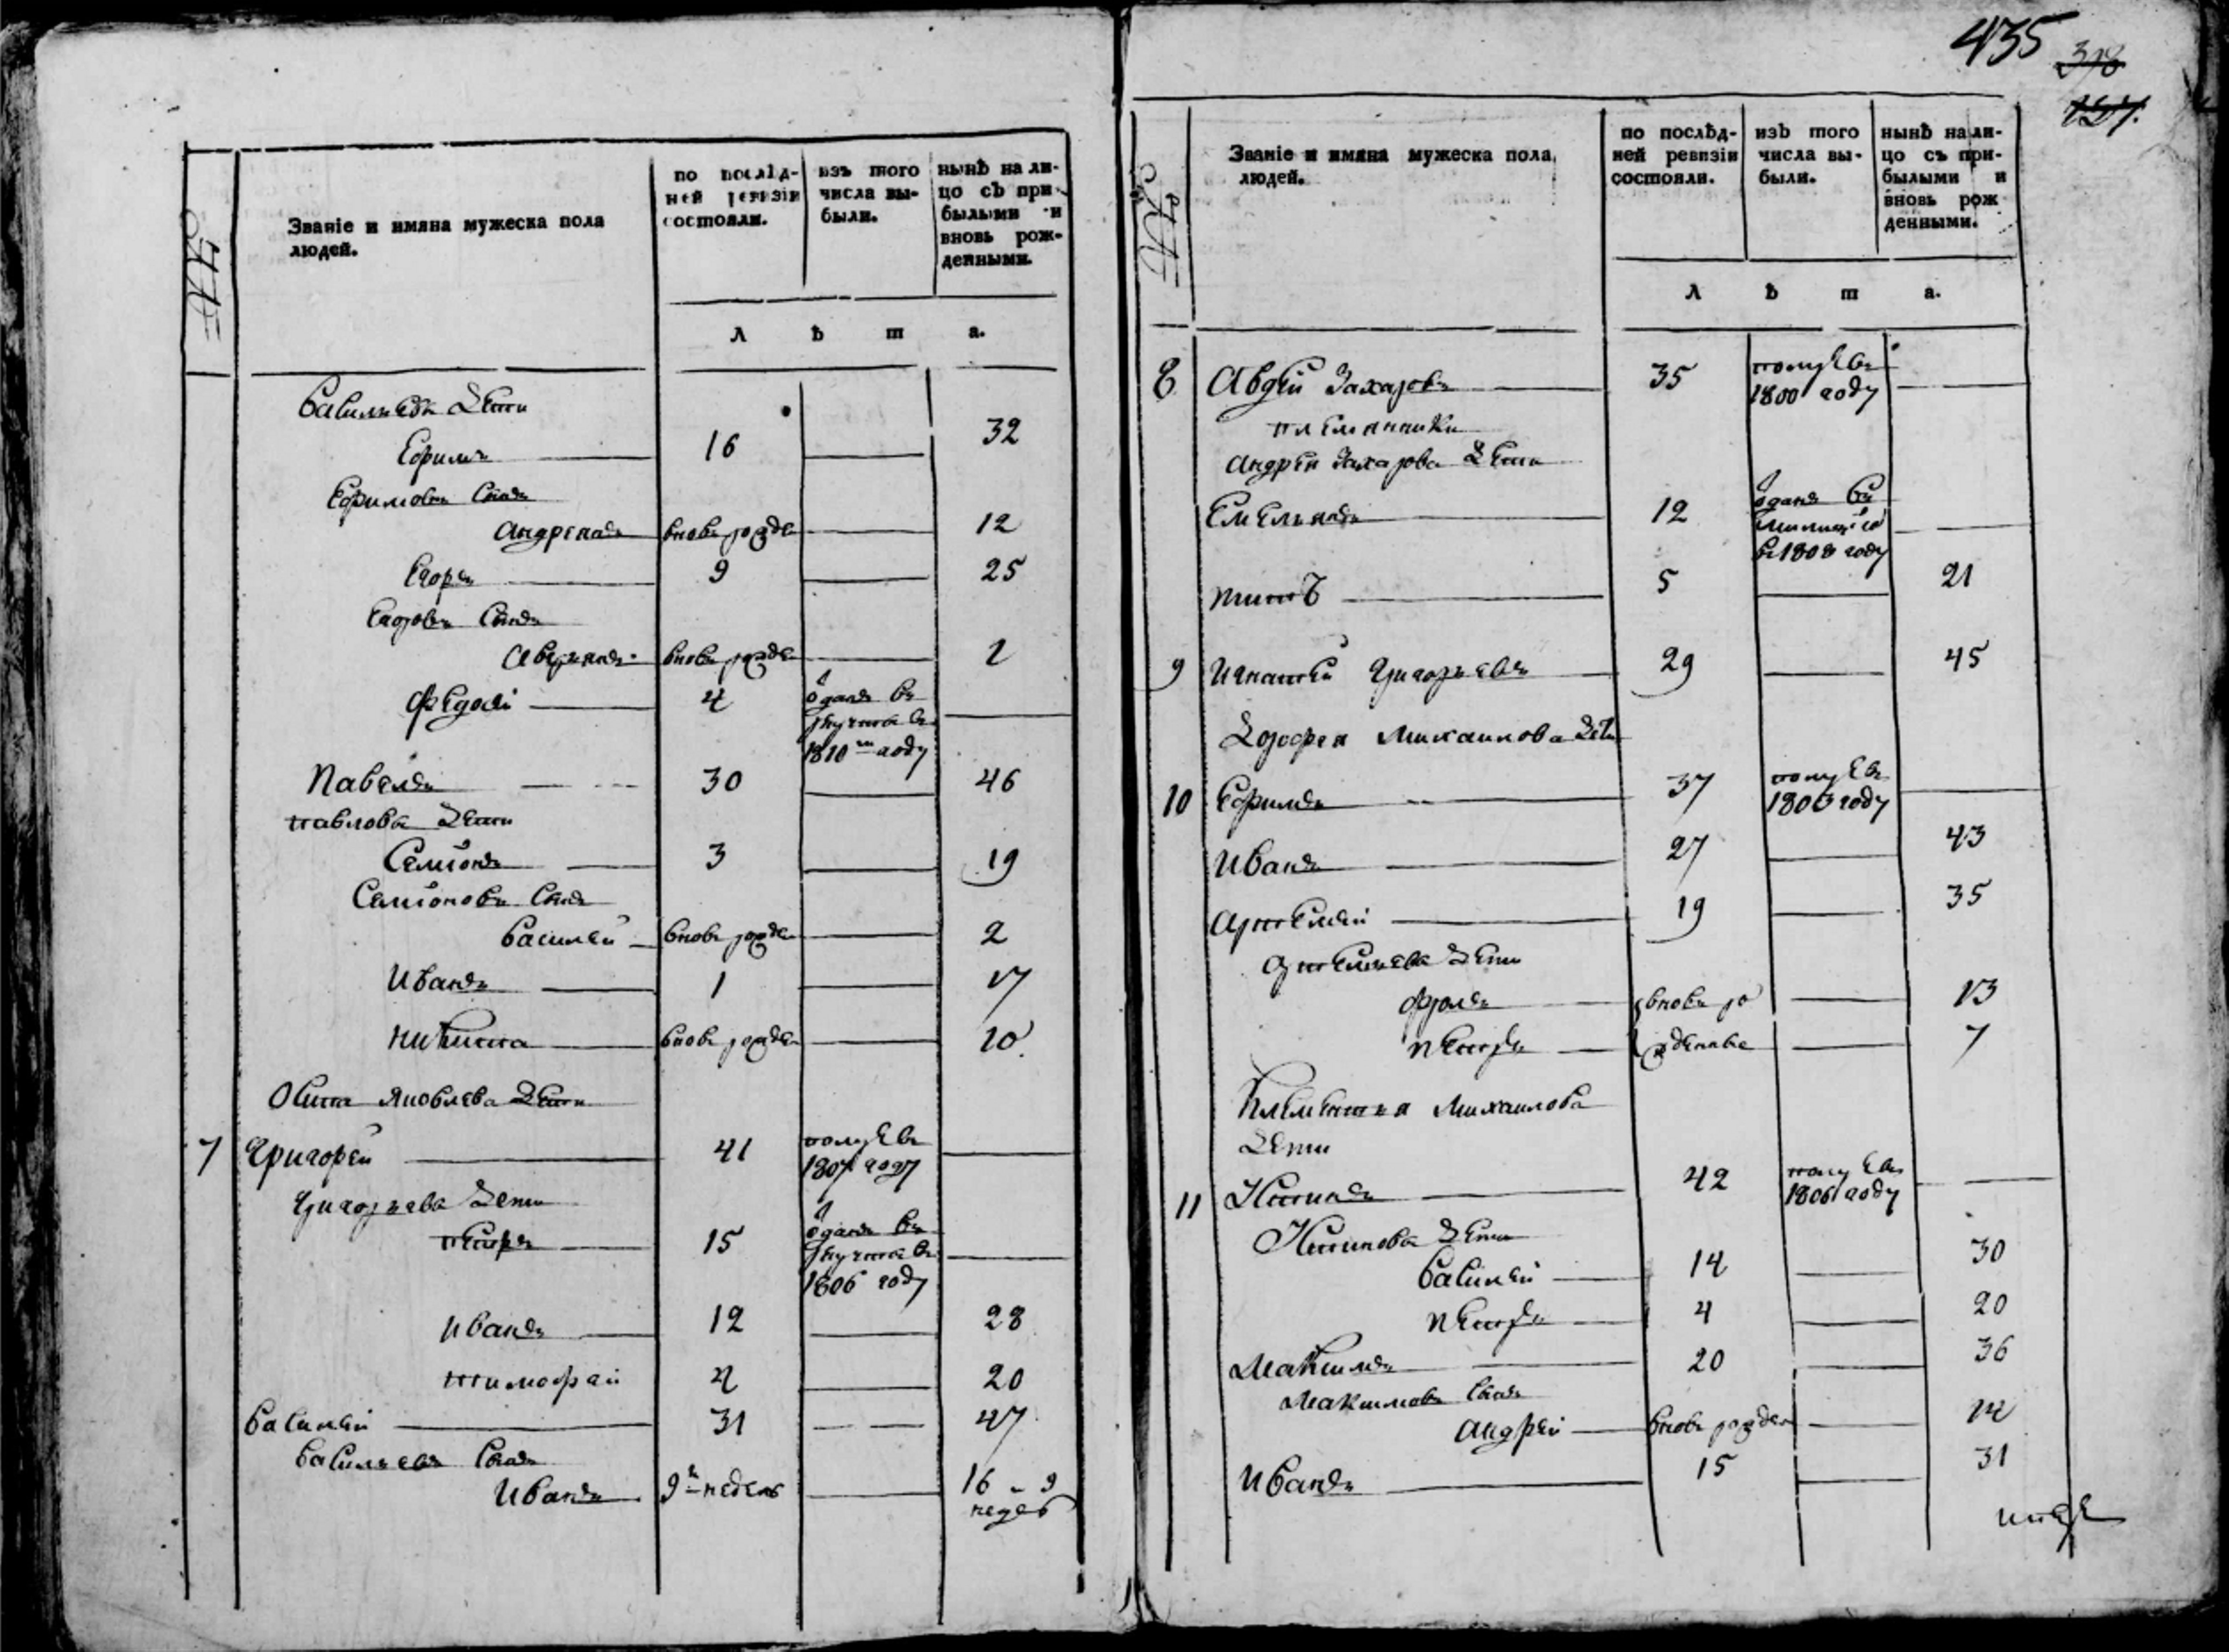 435
318
157.
Званіе и имяна мужеска пола
людей.
по послѣд-
ней ревизіи
состояли.
изъ того
числа вы-
были.
нынѣ на ли-
цо съ при-
былыми и
вновь рож-
денными.
л ѣ т а.
Васильевы Дети
Ефимъ 16 32
Ефимовъ Сынъ
Андреянъ вновь рожде 12
Егоръ 9 25
Егоровъ Сынъ
Аверьянъ вновь рожде 2
Федотъ 4 отданъ въ
рекруты въ
1810м году
Павелъ 30 46
Павлова Дети
Семіонъ 3 19
Семіоновъ Сынъ
Василей вновь рожде 2
Иванъ 1 17
Никита вновь рожде 10.
Осипа Яковлева Дети
7 Григорей 41 померъ въ
1807 году
Григорьева Дети
Петръ 15 отданъ въ
рекруты въ
1806 году
Иванъ 12 28
Тимофей 4 20
Василей 31 47
Васильевъ Сынъ
Иванъ 9ъ недель 16 - 9
недел
Званіе и имяна мужеска пола
людей.
по послѣд-
ней ревизіи
состояли.
изъ того
числа вы-
были.
нынѣ на ли-
цо съ при-
былыми и
вновь рож
денными.
л ѣ т а.
8 Авдей Захаровъ 35 померъ въ
1800 году
племянники
Андрея Захарова Дети
Емельянъ 12 отданъ въ
милицію
въ 1808 году
Титъ 5 21
9 Игнатей Григорьевъ 29 45
Дорофея Михаилова Дети
10 Ефимъ 37 померъ въ
1803 году
Иванъ 27 43
Артемей 19 35
Артемьева Дети
Фролъ вновь ро 13
Петръ жденные 7
Климентья Михаилова
Дети
11 42 померъ въ
1806 году
Дети
Василей 14 30
Петръ 4 20
Максимъ 20 36
Максимовъ Сынъ
Андрей вновь рожден 14
Иванъ 15 31